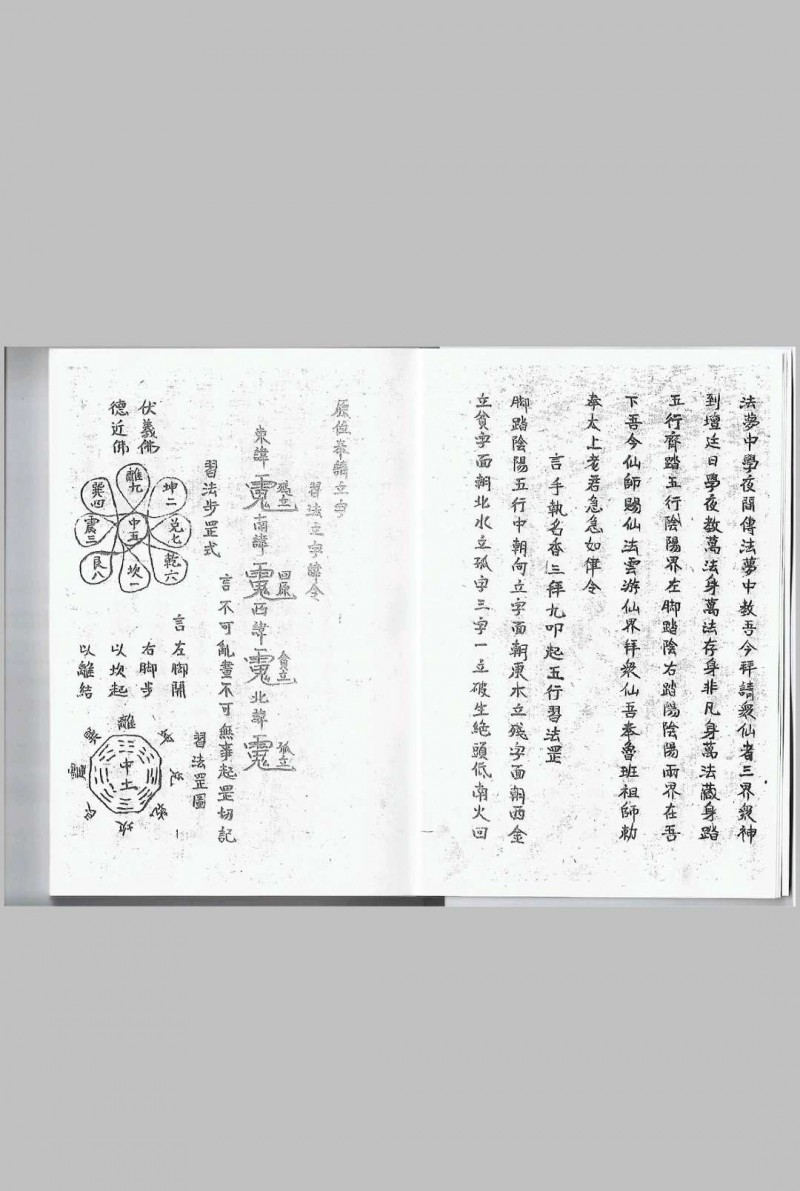 法夢中學夜間傳法夢中教吾今拜請眾仙者三界眾神
到壇廷日學夜教萬法身萬法存身非凡身萬法藏身踏
五行齊踏五行陰陽界左脚踏陰右踏陽陰陽兩界在吾
下吾今仙師賜仙法雲游仙界拜眾仙吾奉魯班祖師勅
奉太上老君急急如律令
言手執名香三拜九叩起五行習法罡
脚踏陰陽五行中朝向立字面朝東木立殘字面朝西金
立貧字面朝北水立孤字三字一立破生絶頭低南火回
原位奉請立字
習法立字諱令
東諱 殘立
南諱 回原
西諱 貧立
北諱 孤立
言不可亂畫不可無事起罡切記
習法步罡式
伏義佛
德近佛
離九
坤二
巽四
兌七
中五
震三
乾六
坎一
艮八
習法罡圖
言左脚開
右脚步
以坎起
以離結
離
坤
巽
兌
震
中土
乾
艮
坎